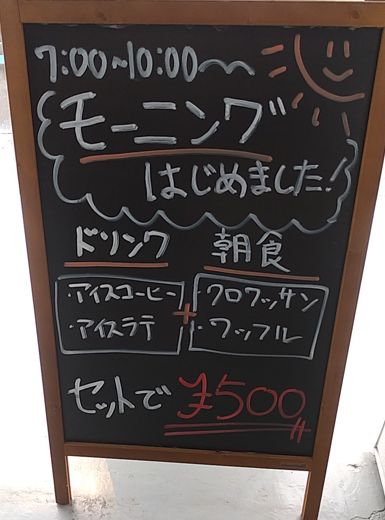 7:00~10:00~
モーニング
はじめました!
ドリンク 朝食
・アイスコーヒー + ・クロワッサン
・アイスラテ ・ワッフル
セットで ¥500